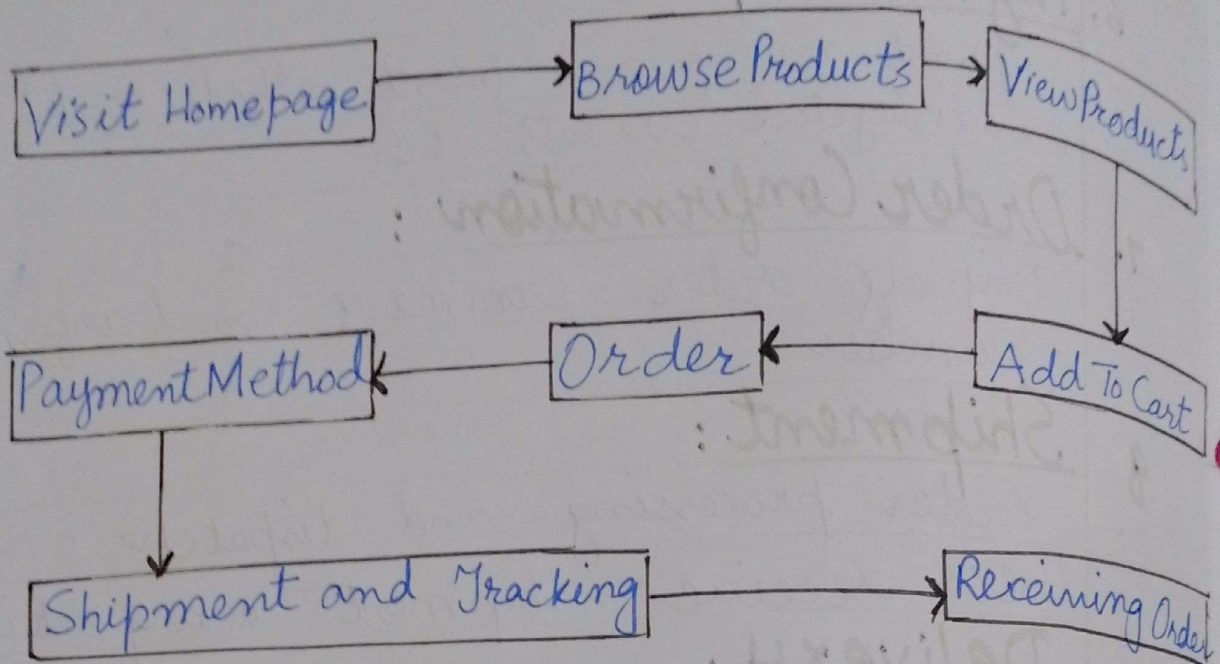 Visit Homepage
Browse Products
View Products
Add To Cart
Order
Payment Method
Shipment and Tracking
Receiving Order